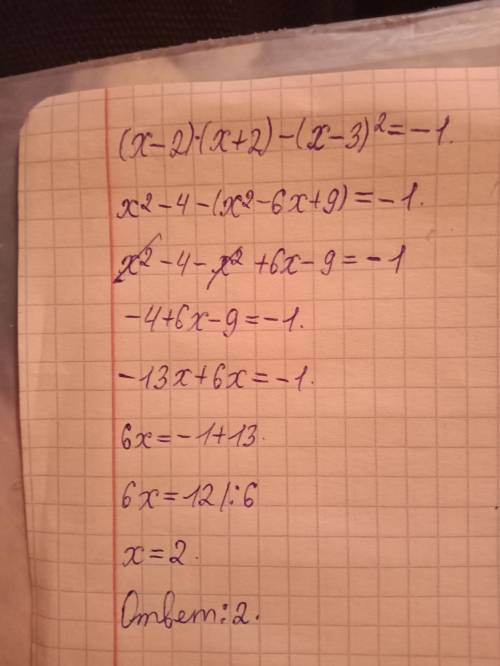 (x-2)·(x+2)-(x-3)²=-1.
x²-4-(x²-6x+9)=-1.
x²-4-x²+6x-9=-1
-4+6x-9=-1.
-13x+6x=-1.
6x=-1+13.
6x=12/:6
x=2.
Ответ:2.